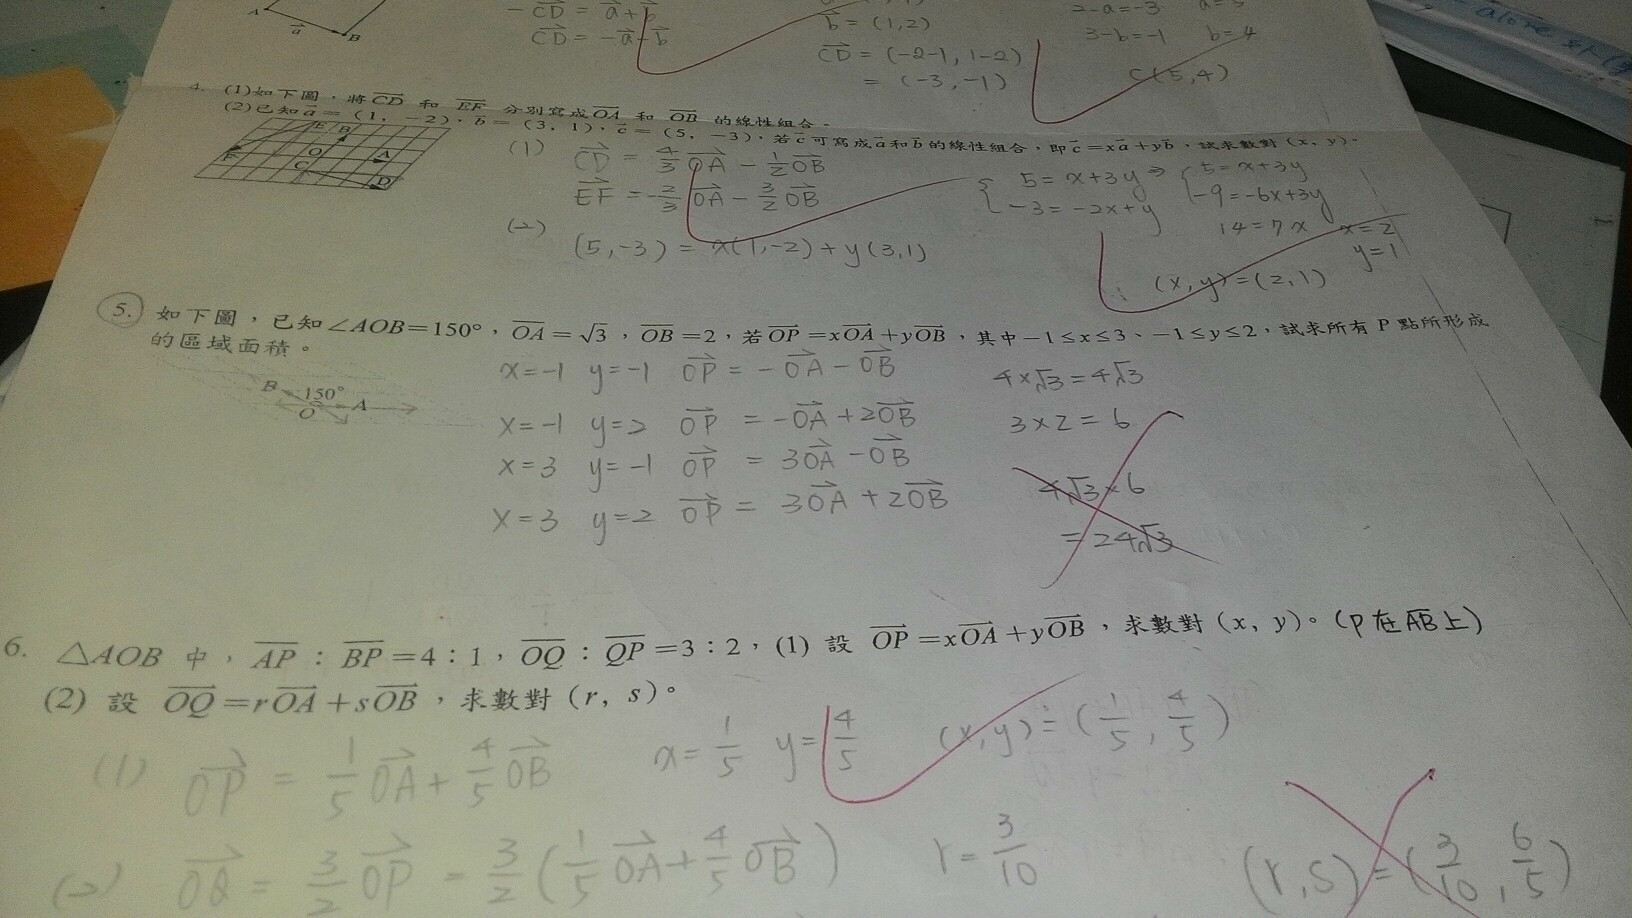 A
a
B
-CD = a+b
CD = -a-b
b = (1,2)
CD = (-2-1, 1-2)
= (-3, -1)
2-a=-3
3-b=-1 b=4
C(5,4)
4. (1)如下圖，將CD 和 EF 分別寫成OA 和 OB 的線性組合。
(2)已知a=(1, -2)，b=(3, 1)，c=(5, -3)，若c可寫成a和b的線性組合，即c=xa+yb，試求數對(x, y)。
E B
F O A
C D
(1) CD = 4/3 OA - 1/2 OB
EF = -2/3 OA - 3/2 OB
(2) (5,-3) = x(1,-2)+y(3,1)
{ 5=x+3y ⇒ { 5=x+3y
-3=-2x+y -9=-6x+3y
14=7x x=2
y=1
(x,y)=(2,1)
5. 如下圖，已知∠AOB=150°，OA=√3，OB=2，若OP=xOA+yOB，其中-1≤x≤3、-1≤y≤2，試求所有P點所形成
的區域面積。
B 150° O A
x=-1 y=-1 OP = -OA-OB
x=-1 y=2 OP = -OA+2OB
x=3 y=-1 OP = 3OA-OB
x=3 y=2 OP = 3OA+2OB
4×√3=4√3
3×2=6
4√3×6
=24√3
6. △AOB 中，AP：BP=4：1，OQ：QP=3：2，(1) 設 OP=xOA+yOB，求數對(x, y)。(P在AB上)
(2) 設 OQ=rOA+sOB，求數對(r, s)。
(1) OP = 1/5 OA + 4/5 OB x=1/5 y=4/5 (x,y)=(1/5, 4/5)
(2) OQ = 3/2 OP = 3/2(1/5 OA+4/5 OB) r=3/10 (r,s)=(3/10, 6/5)